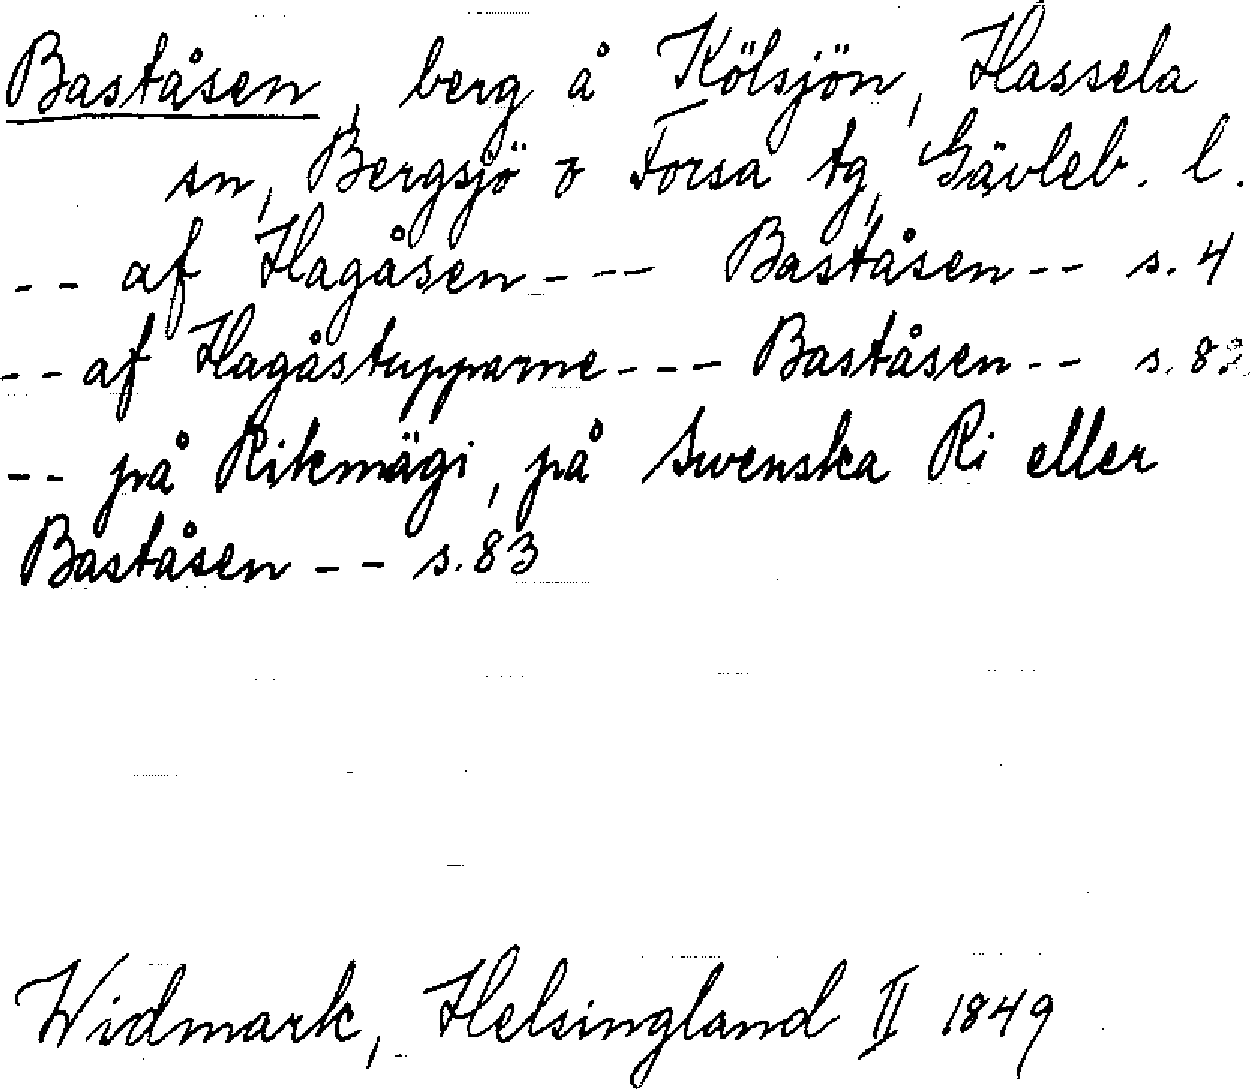 Baståsen, berg å Kölsjön, Hassela
sn, Bergsjö o Forsa tg, Gävleb. l.
-- af Hagåsen --- Baståsen -- s. 4
-- af Hagåstupparne --- Baståsen -- s. 82
-- på Rikmägi, på Swenska Ri eller
Baståsen -- s. 83
Widmark, Helsingland II 1849